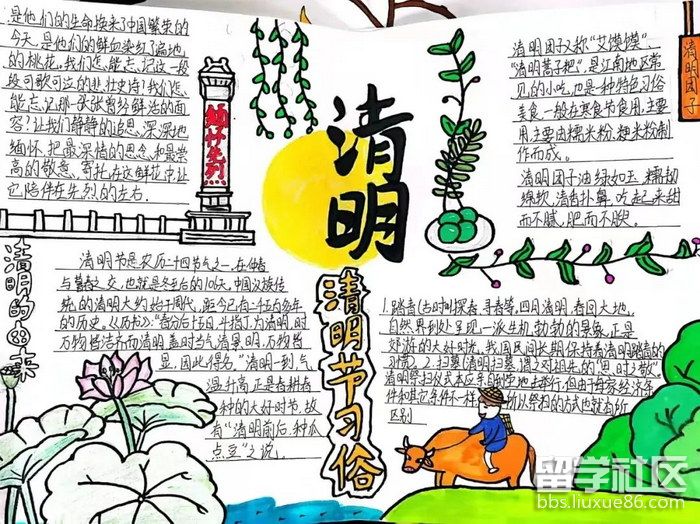 是他们的生命换来了中国繁荣的
今天,是他们的鲜血染红了遍地
的桃花。我们怎能忘记这一段
段可歌可泣的悲壮史诗?我们怎
能忘记那一张张曾经鲜活的面
容?让我们静静的追思、深深地
缅怀,把最深情的思念和最崇
高的敬意,寄托在这鲜花中,让
它陪伴在先烈的左右。
缅怀先烈
清明
清明团子
清明团子又称“艾馍馍”、
“清明蒿子粑”,是江南地区常
见的小吃,也是一种特色习俗
美食,一般在寒食节食用,主要
用主要由糯米粉、粳米粉制
作而成。
清明团子油绿如玉,糯韧
绵软,清香扑鼻,吃起来甜
而不腻,肥而不腴。
清明的由来
清明节是农历二十四节气之一,在仲春
与暮春之交,也就是冬至后的106天,中国汉族传
统的清明大约始于周代,距今已有二千五百多年
的历史。《历书》:“春分后十五日,斗指丁,为清明,时
万物皆洁齐而清明,盖时当气清景明,万物皆
显,因此得名。”清明一到,气
温升高,正是春耕春
种的大好时节,故
有“清明前后,种瓜
点豆”之说。
清明节习俗
1.踏青(古时叫探春、寻春等,四月清明,春回大地,
自然界到处呈现一派生机勃勃的景象,正是
郊游的大好时光。我国民间长期保持着清明踏青的
习惯。2.扫墓(清明扫墓,谓之对祖先的“思时之敬”
清明祭扫仪式本应亲自到茔地去举行,但由于每家经济条
件和其它条件不一样,所以祭扫的方式也就有所
区别
留学社区
bbs.liuxue86.com